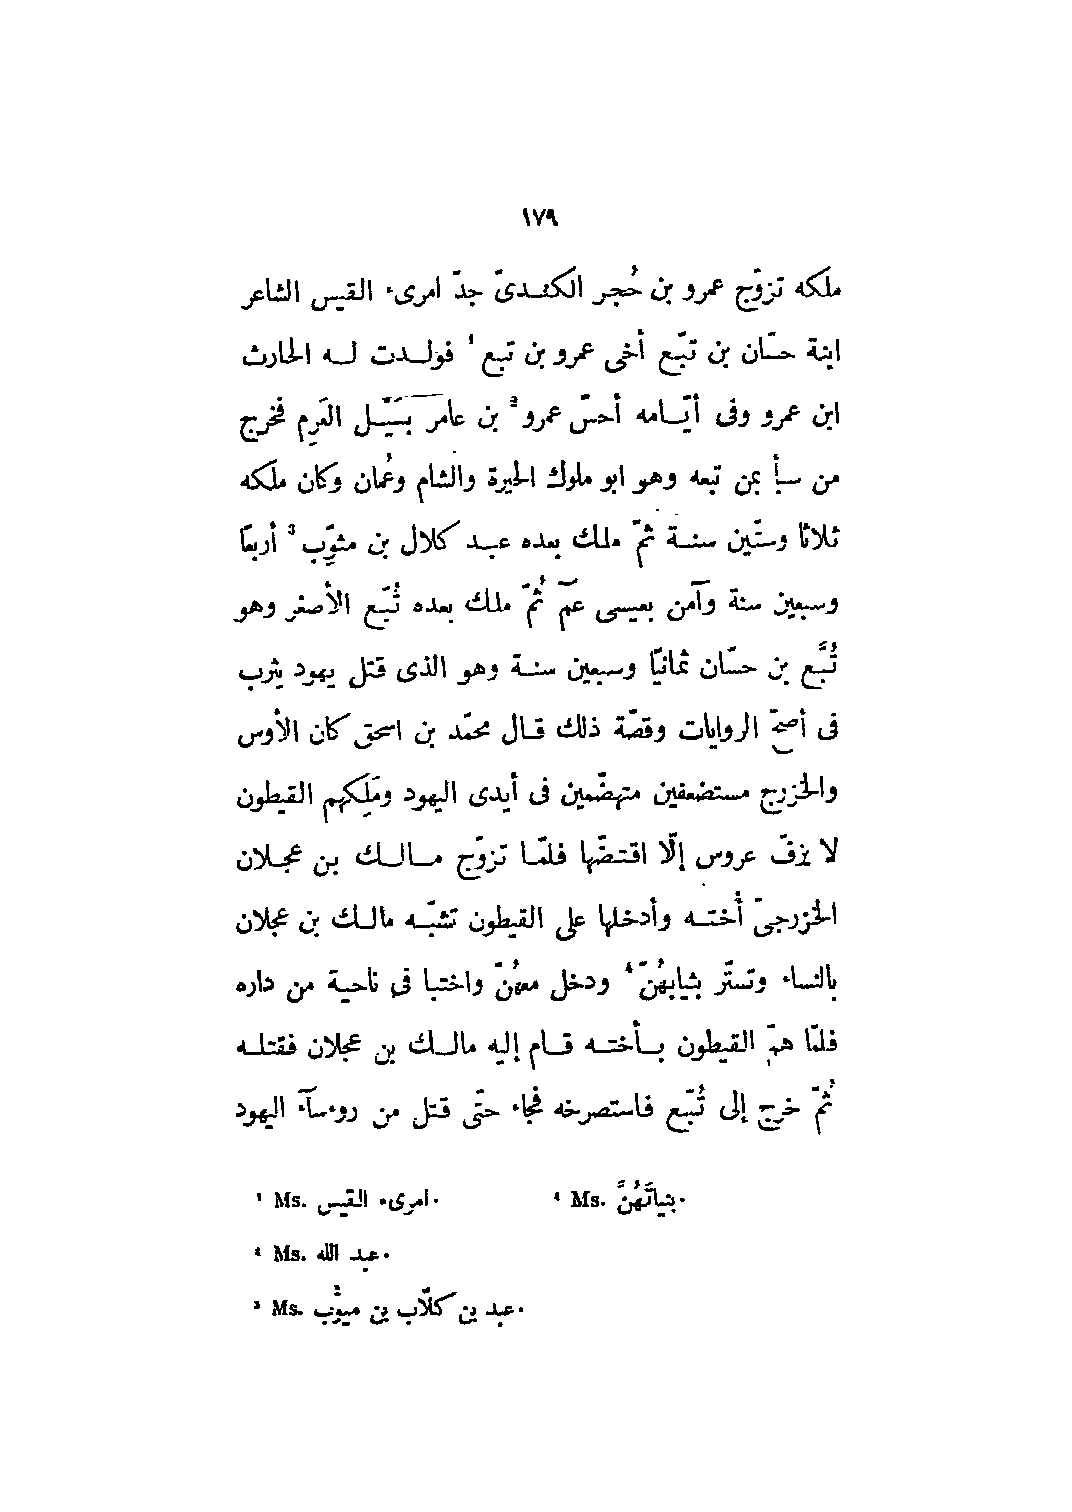 ١٧٩
ملكه تزوّج عمرو بن حُجر الكندىّ جدّ امرىء القيس الشاعر
ابنة حسّان بن تبّع أخى عمرو بن تبع ¹ فولدت له الحارث
ابن عمرو وفى أيّامه أحسّ عمرو ² بن عامر بسَيّل العَرِم فخرج
من سبأ بمن تبعه وهو ابو ملوك الحيرة والشام وعُمان وكان ملكه
ثلاثا وستّين سنة ثمّ ملك بعده عبد كلال بن مثوِّب ³ أربعًا
وسبعين سنة وآمن بعيسى عمّ ثُمّ ملك بعده تُبّع الأصغر وهو
تُبَّع بن حسّان ثمانيًا وسبعين سنة وهو الذى قتل يهود يثرب
فى أصحّ الروايات وقصّة ذلك قال محمّد بن اسحق كان الأوس
والخزرج مستضعفين متهضّمين فى أيدى اليهود ومَلِكهم القيطون
لا يزفّ عروس إلّا اقتضّها فلمّا تزوّج مالك بن عجلان
الخزرجىّ أُخته وأدخلها على القيطون تشبّه مالك بن عجلان
بالنساء وتستّر بثيابهُنّ ⁴ ودخل معهُنّ واختبا فى ناحية من داره
فلمّا همّ القيطون بأخته قام إليه مالك بن عجلان فقتله
ثُمّ خرج إلى تُبّع فاستصرخه فجاء حتّى قتل من روءسآء اليهود
¹ Ms. امرىء القيس.
⁴ Ms. بنياتَهُنَّ.
² Ms. عبد الله.
³ Ms. عبد بن كلّاب بن ميثوب.